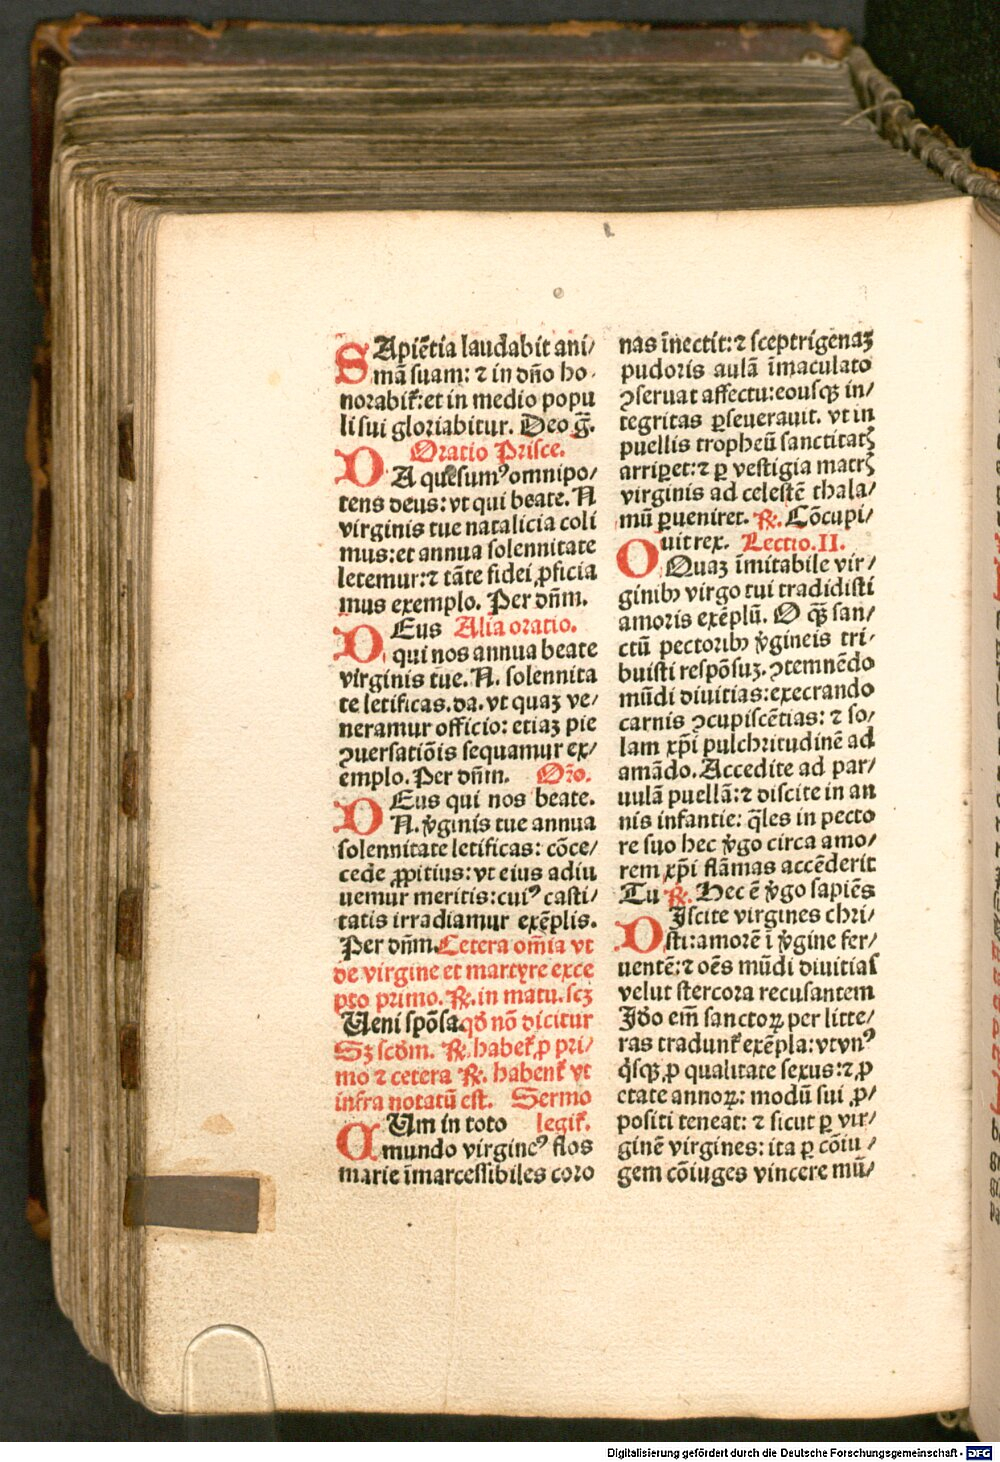 SApiētia laudabit ani/
mā suam: ⁊ in dn̄o ho-
norabit᷑: et in medio popu
li sui gloriabitur. Deo g̅.
Oratio Prisce.
DA quesumꝰ omnipo/
tens deus: vt qui beate. N
virginis tue natalicia coli
mus: et annua solennitate
letemur: ⁊ tāte fidei ꝓficia
mus exemplo. Per dn̄m.
DEus Alia oratio.
qui nos annua beate
virginis tue. N. solennita
te letificas. da. vt quaꝫ ve/
neramur officio: etiaꝫ pie
ꝯuersatiōis sequamur ex/
emplo. Per dn̄m. Or̄o.
DEus qui nos beate.
N. v̓ginis tue annua
solennitate letificas: cōce/
cede ꝓpitius: vt eius adiu
uemur meritis: cuiꝰ casti/
tatis irradiamur exēplis.
Per dn̄m. Cetera om̄ia vt
de virgine et martyre exce
pto primo. ℟. in matu. scꝫ
Ueni spōsa. qd̓ nō dicitur
Sꝫ scd̓m. ℟. habet᷑ ꝓ pri/
mo ⁊ cetera ℟. habent᷑ vt
infra notatū est. Sermo
CUm in toto legit᷑.
mundo virgineꝰ flos
marie īmarcessibiles coro
nas īnectit: ⁊ sceptrigenaꝫ
pudoris aulā īmaculato
ꝯseruat affectu: eousqꝫ in/
tegritas ꝑseuerauit. vt in
puellis tropheū sanctitatꝭ
arriꝑet: ⁊ ꝑ vestigia matrꝭ
virginis ad celestē thala/
mū ꝑueniret. ℟. Cōcupi/
uit rex. Lectio. II.
OQuaꝫ īmitabile vir/
ginibꝫ virgo tui tradidisti
amoris exēplū. O qꝫ̄ san/
ctū pectoribꝫ v̓gineis tri-
buisti respōsuꝫ. ꝯtemnēdo
mūdi diuitias: execrando
carnis ꝯcupiscētias: ⁊ so/
lam xp̄i pulchritudinē ad
amādo. Accedite ad par/
uulā puellā: ⁊ discite in an
nis infantie: q̄les in pecto
re suo hec v̓go circa amo/
rem xp̄i flāmas accēderit
Tu ℟. Hec ē v̓go sapiēs
DIscite virgines chri/
sti: amorē ī v̓gine fer/
uentē: ⁊ oēs mūdi diuitias
velut stercora recusantem
Id̓o em̄ sanctoꝝ per litte/
ras tradunt᷑ exēpla: vt vnꝰ
q̓sqꝫ ꝓ qualitate sexus: ⁊ ꝓ
etate annoꝝ: modū sui ꝓ/
positi teneat: ⁊ sicut ꝑ vir/
ginē virgines: ita ꝑ cōiu/
gem cōiuges vincere mū/
Digitalisierung gefördert durch die Deutsche Forschungsgemeinschaft - DFG